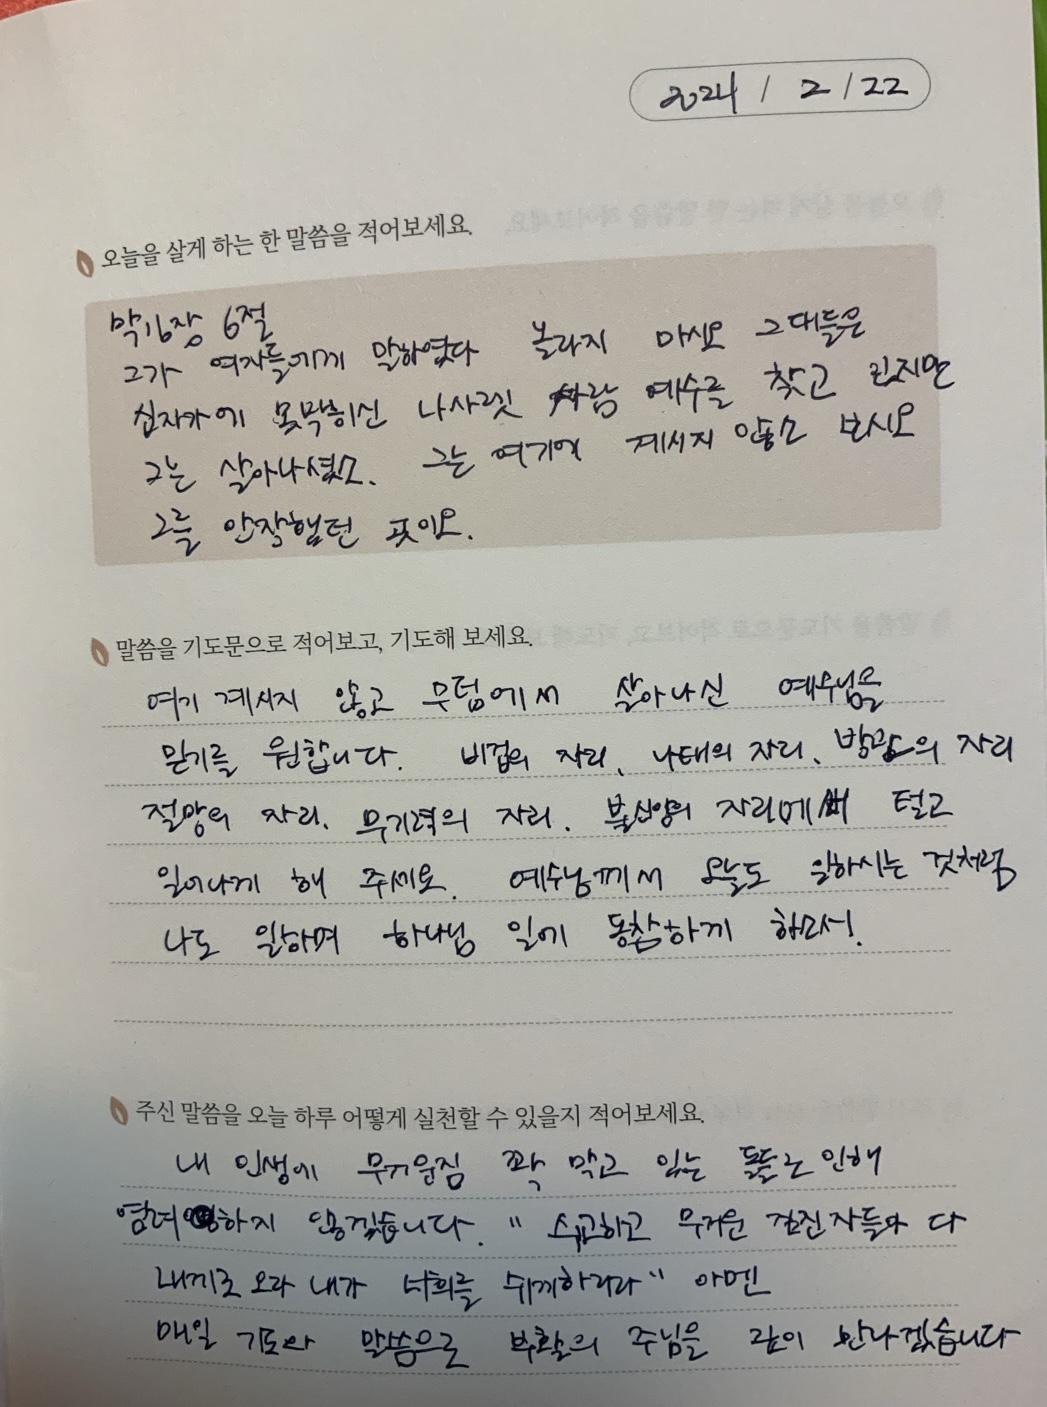 2024 / 2 / 22
오늘을 살게 하는 한 말씀을 적어보세요.
막16장 6절
그가 여자들에게 말하였다 놀라지 마시오 그대들은
십자가에 못박히신 나사렛 사람 예수를 찾고 있지만
그는 살아나셨소. 그는 여기에 계시지 않소 보시오
그를 안장했던 곳이오.
말씀을 기도문으로 적어보고, 기도해 보세요.
여기 계시지 않고 무덤에서 살아나신 예수님을
믿기를 원합니다. 비겁의 자리, 나태의 자리, 방관의 자리
절망의 자리. 무기력의 자리. 불신앙의 자리에서 털고
일어나게 해 주세요. 예수님께서 오늘도 일하시는 것처럼
나도 일하며 하나님 일에 동참하게 하소서!
주신 말씀을 오늘 하루 어떻게 실천할 수 있을지 적어보세요.
내 인생에 무거운짐 꽉 막고 있는 돌들로 인해
염려하지 않겠습니다. " 수고하고 무거운 짐진자들아 다
내게로 오라 내가 너희를 쉬게하리라" 아멘
매일 기도와 말씀으로 부활의 주님을 깊이 만나겠습니다